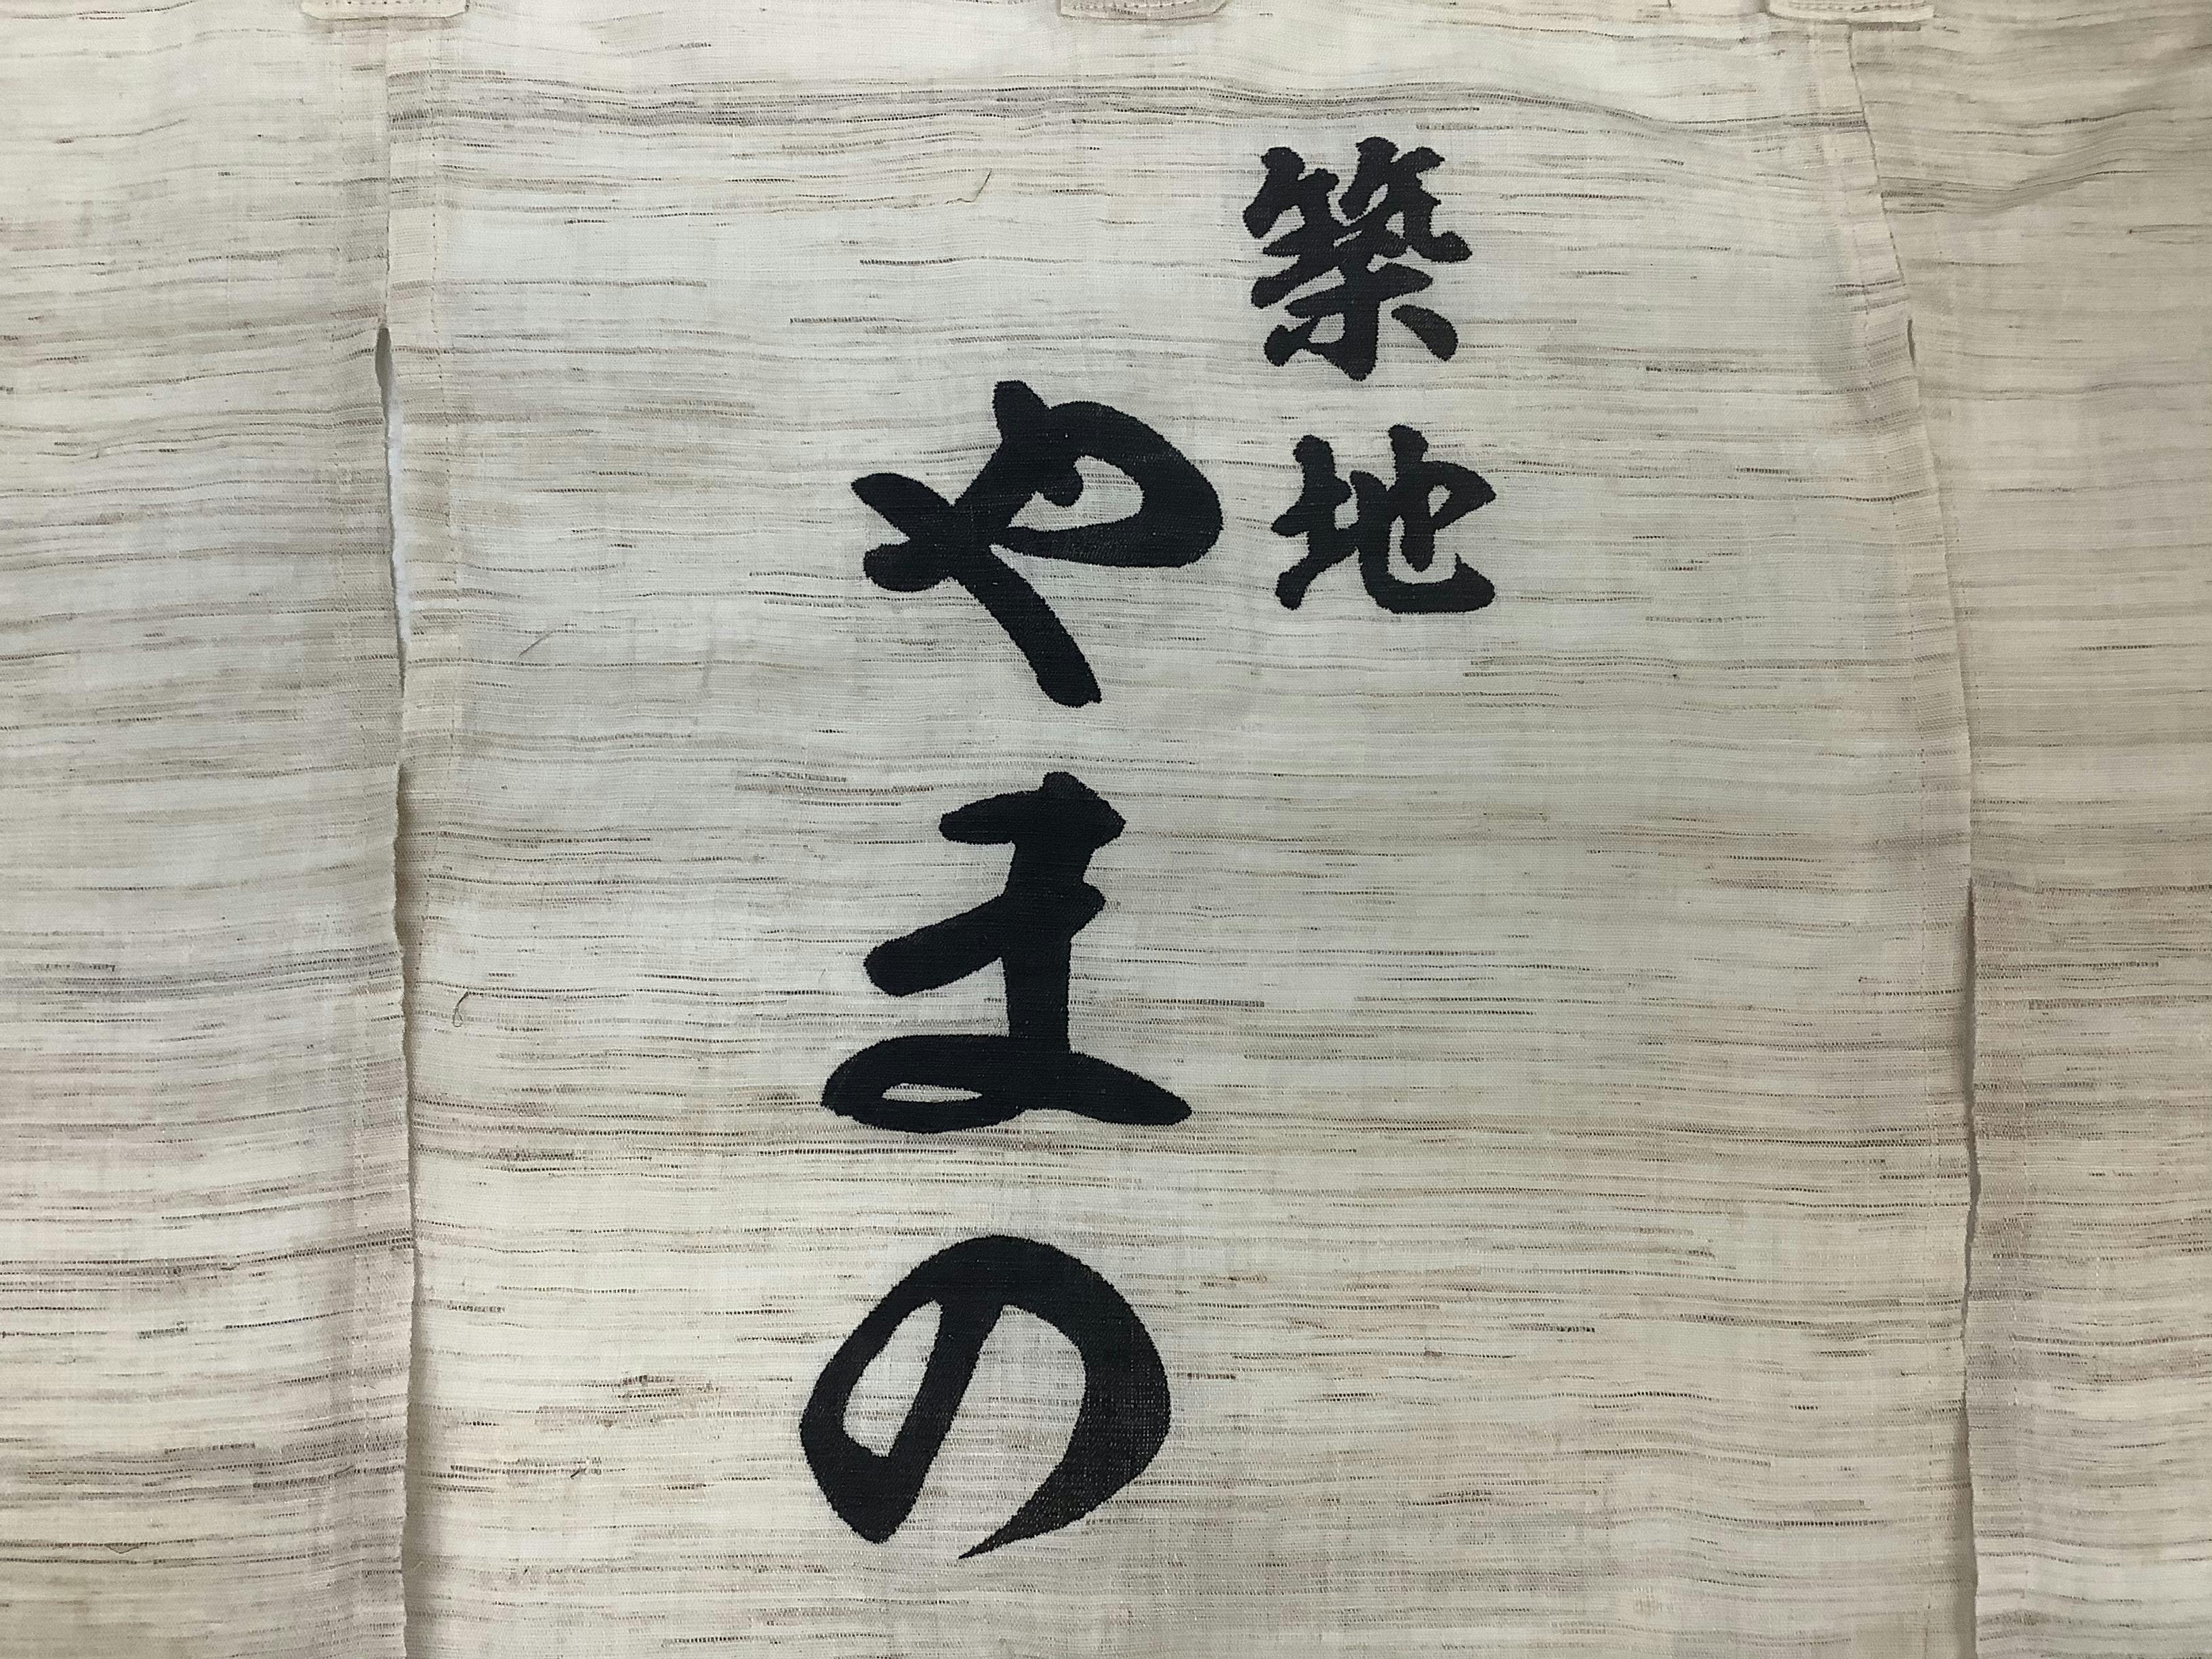 築地
やまの